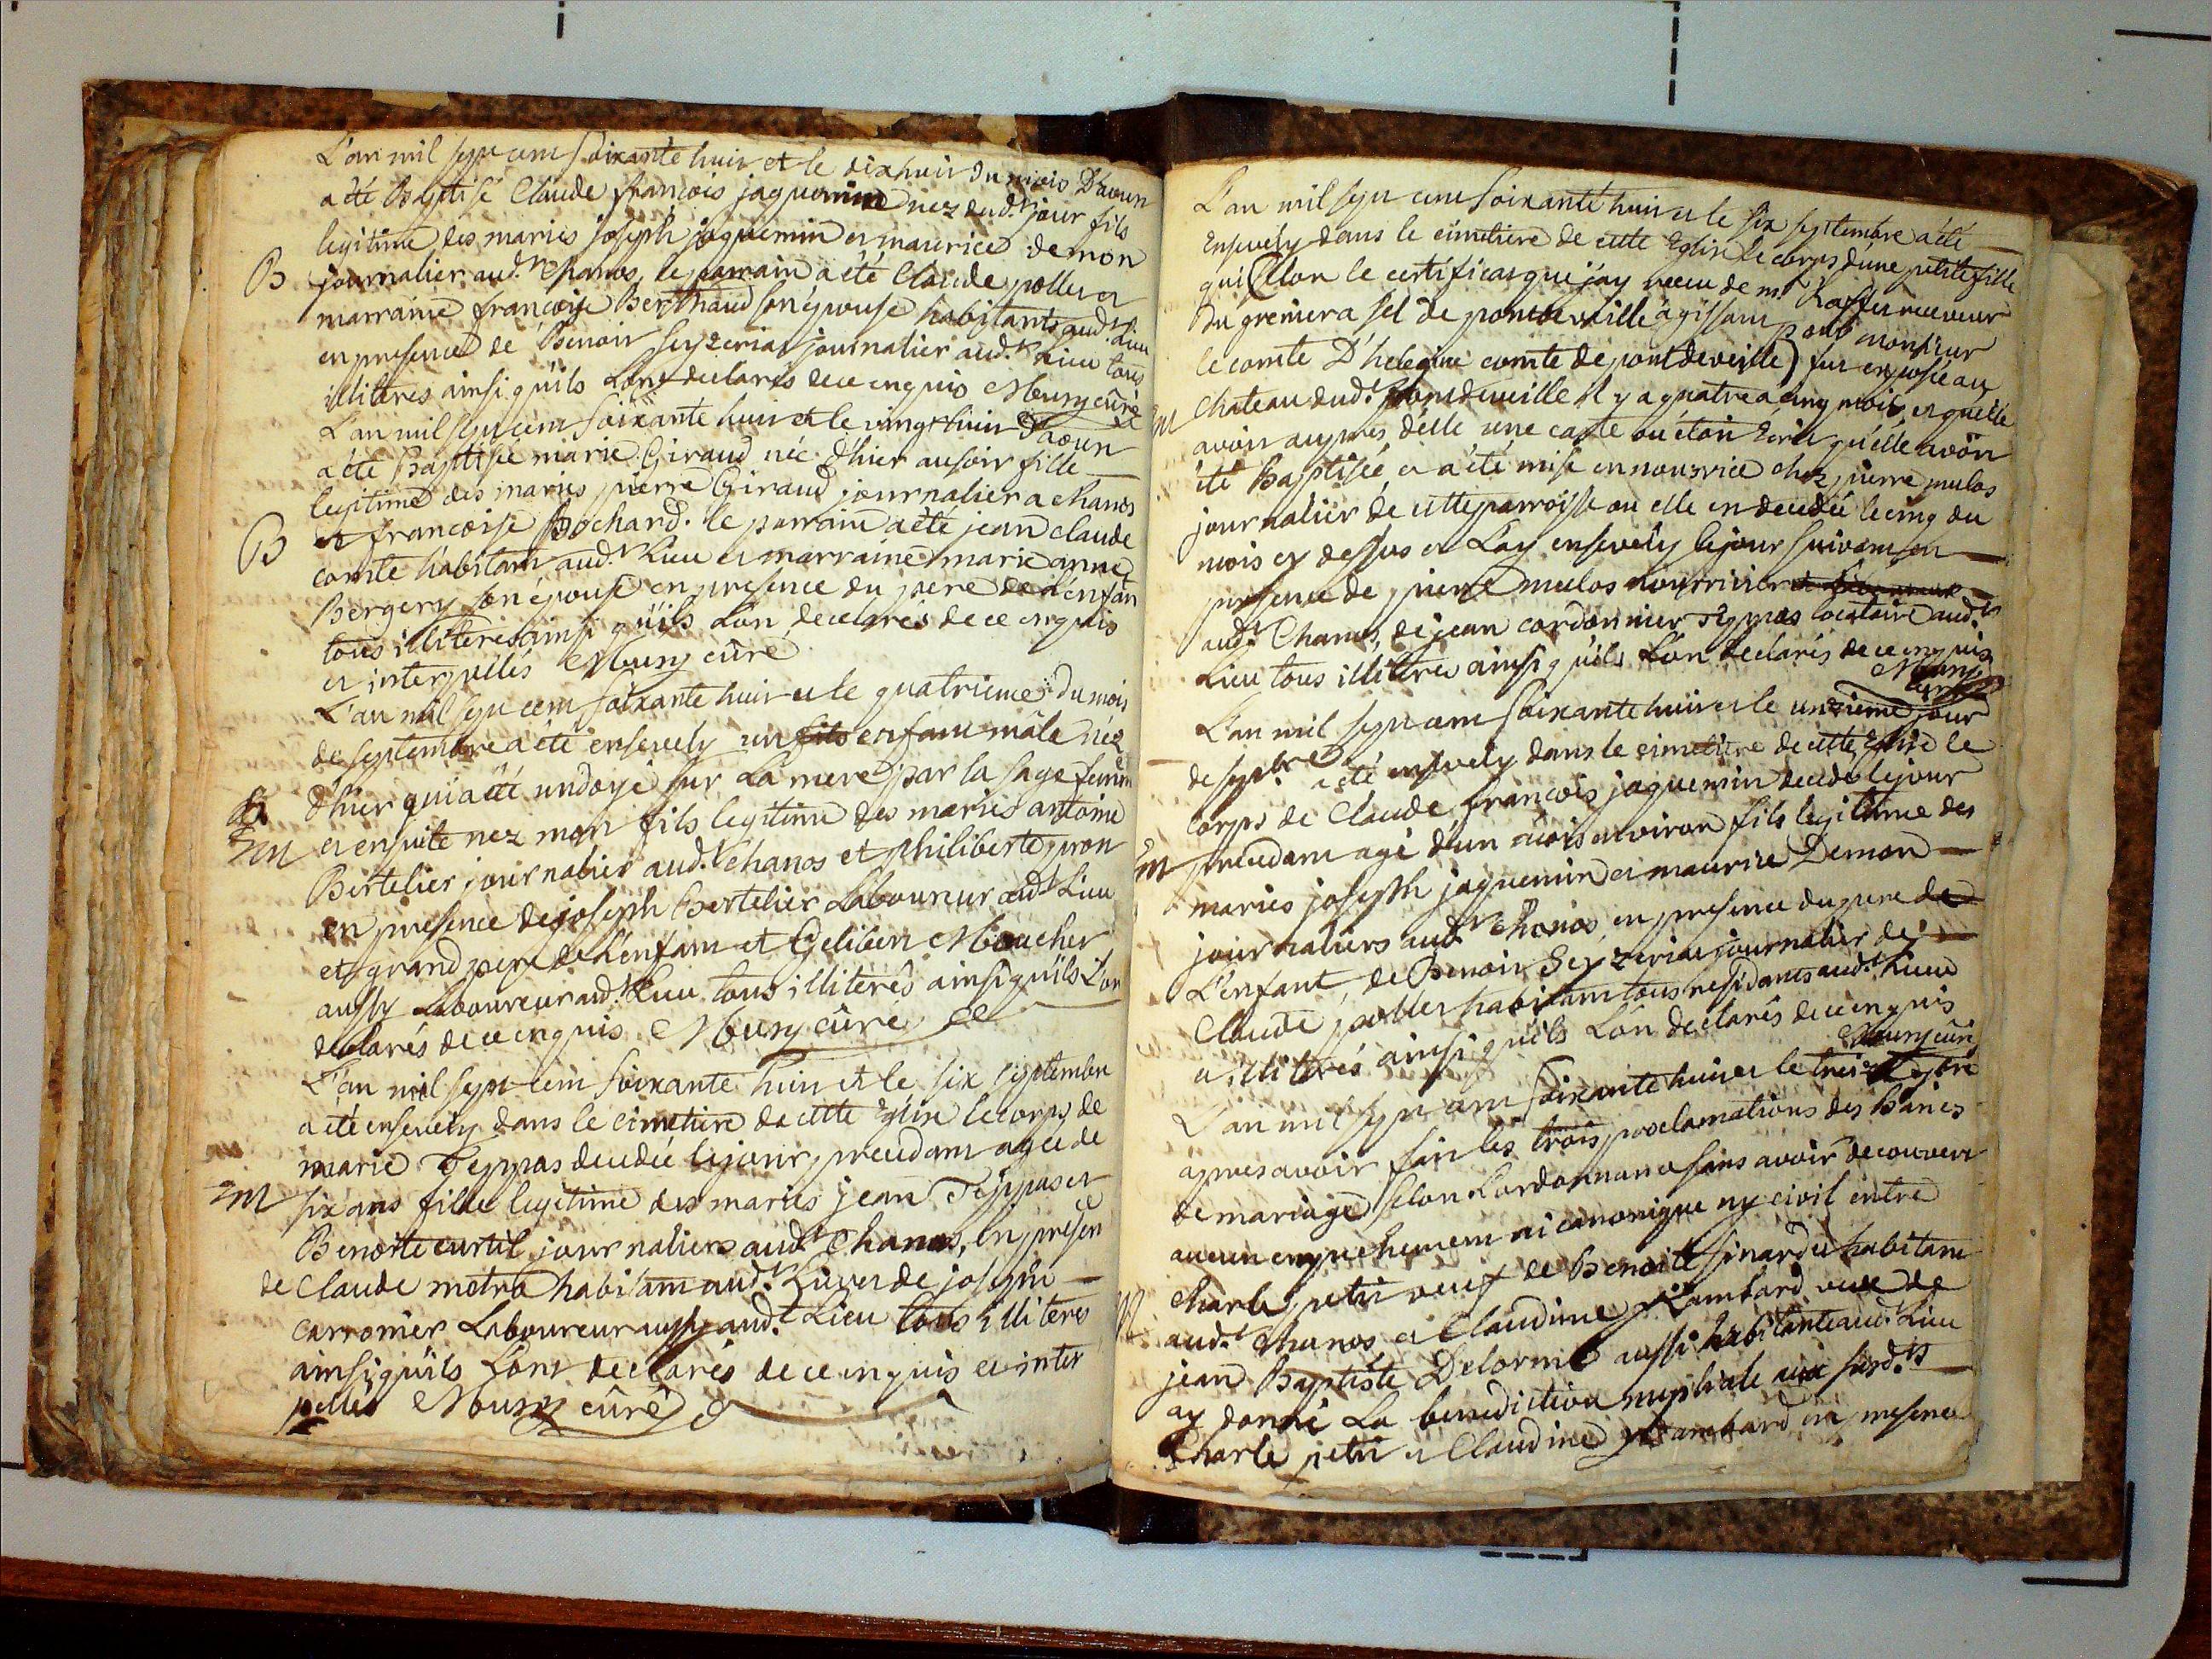 L'an mil sept cent soixante huit et le dix huit du mois D'aoust
a été Baptisé Claude françois jaquemin nez dud.t jour fils
legitime des mariés joseph jaquemin et maurice demon
B
journalier aud.t Chanos, le parrain a été Claude pollet et
marraine françoise Berthaud son épouse habitants aud.t Lieu
en presence de Benoit Seyzeriat journalier aud.t Lieu tous
illiteres ainsi qu'ils L'ont declarés de ce enquis Mury curé
L'an mil sept cent soixante huit et le vingt huit D'aoust
a été Baptisée marie Giraud née d'hier au soir fille
legitime des mariés pierre Giraud journalier a Chanos
B
et françoise Bochard. le parrain a été jean claude
comte habitant aud.t Lieu et marraine marie anne
Bergery son épouse en presence du pere de l'enfan
tous illiteres ainsi qu'ils L'on declarés de ce enquis
et interpellés Mury curé
L'an mil sept cent soixante huit et le quatrieme du mois
de septembre a été ensevely un fils enfant mâle néz
d'hier qui a été undoyé sur La mere par la sage femme
m
et ensuite nez mort fils legitime des mariés antoine
Bertelier journalier aud.t Chanos et philiberte pron
en presence de joseph Bertelier Laboureur aud.t Lieu
et grand pere de L'enfant et Gelibert Moucher
aussy Laboureur aud.t Lieu tous illiteres ainsi qu'ils L'on
declarés de ce enquis Mury curé
L'an mil sept cent soixante huit et le six septembre
a été ensevely dans le cimetiere de cette Eglise le corps de
marie Teppas decedée le jour precedant agée de
m
six ans fille legitime des mariés jean Teppas et
Benoite curtil journaliers aud.t Chanos, en presen ce
de Claude metra habitant aud.t Lieu et de joseph
carronier Laboureur aussy aud.t Lieu tous illiteres
ainsi qu'ils L'ont declarés de ce enquis et inter
pellés Mury curé
L'an mil sept cent soixante huit et le six septembre a été
Ensevely dans le cimetiere de cette Eglise le corps d'une petite fille
qui (selon le certificat que j'ay receu de mr. receveur
du grenier a sel de pontdeveille agissant pour monsieur
le comte D' comte de pontdeveille) fut exposée au
m
Chateau dud.t pontdeveille il y a quatre a cinq mois, et qu'elle
avoit aupres d'elle une carte ou étoit Ecrit qu'elle avoit
été Baptisée et a été mise en nourrice chez pierre mulos
journalier de cette parroisse ou elle en decedée le cinq du
mois cy dessus et L'ay ensevely le jour suivant en
presence de pierre mulos nourricier
aud.t Chanos, de jean cordonnier Teppas locataire aud.t
Lieu tous illiteres ainsi qu'ils L'on declarés de ce enquis
Mury
curé
L'an mil sept cent soixante huit et le unzieme jour
de septbre a été ensevely dans le cimetiere de cette Eglise le
corps de Claude françois jaquemin decedé le jour
m
precedant agé d'un mois environ fils legitime des
mariés joseph jaquemin et maurice Demon
journaliers aud.t Chanos, en presence du pere de
L'enfant, de Benoit Seyzeriat journalier de
Claude pollet habitant tous residants aud.t Lieu
et illiterés ainsi qu'ils L'on declarés de ce enquis
Mury curé
L'an mil sept cent soixante huit et le treize 7bre
apres avoir fait les trois proclamations des Bancs
de mariage selon L'ordonnance sans avoir decouvert
aucun empechement ni canonique ny civil entre
Charle petit veuf de Benoite habitant
M
aud.t Chanos, et Claudine Lambard veuve de
jean Baptiste Delorme aussi habitante aud.t Lieu
ay donné La benediction nuptiale aux susd.ts
Charle petit et Claudine Lambard en presence